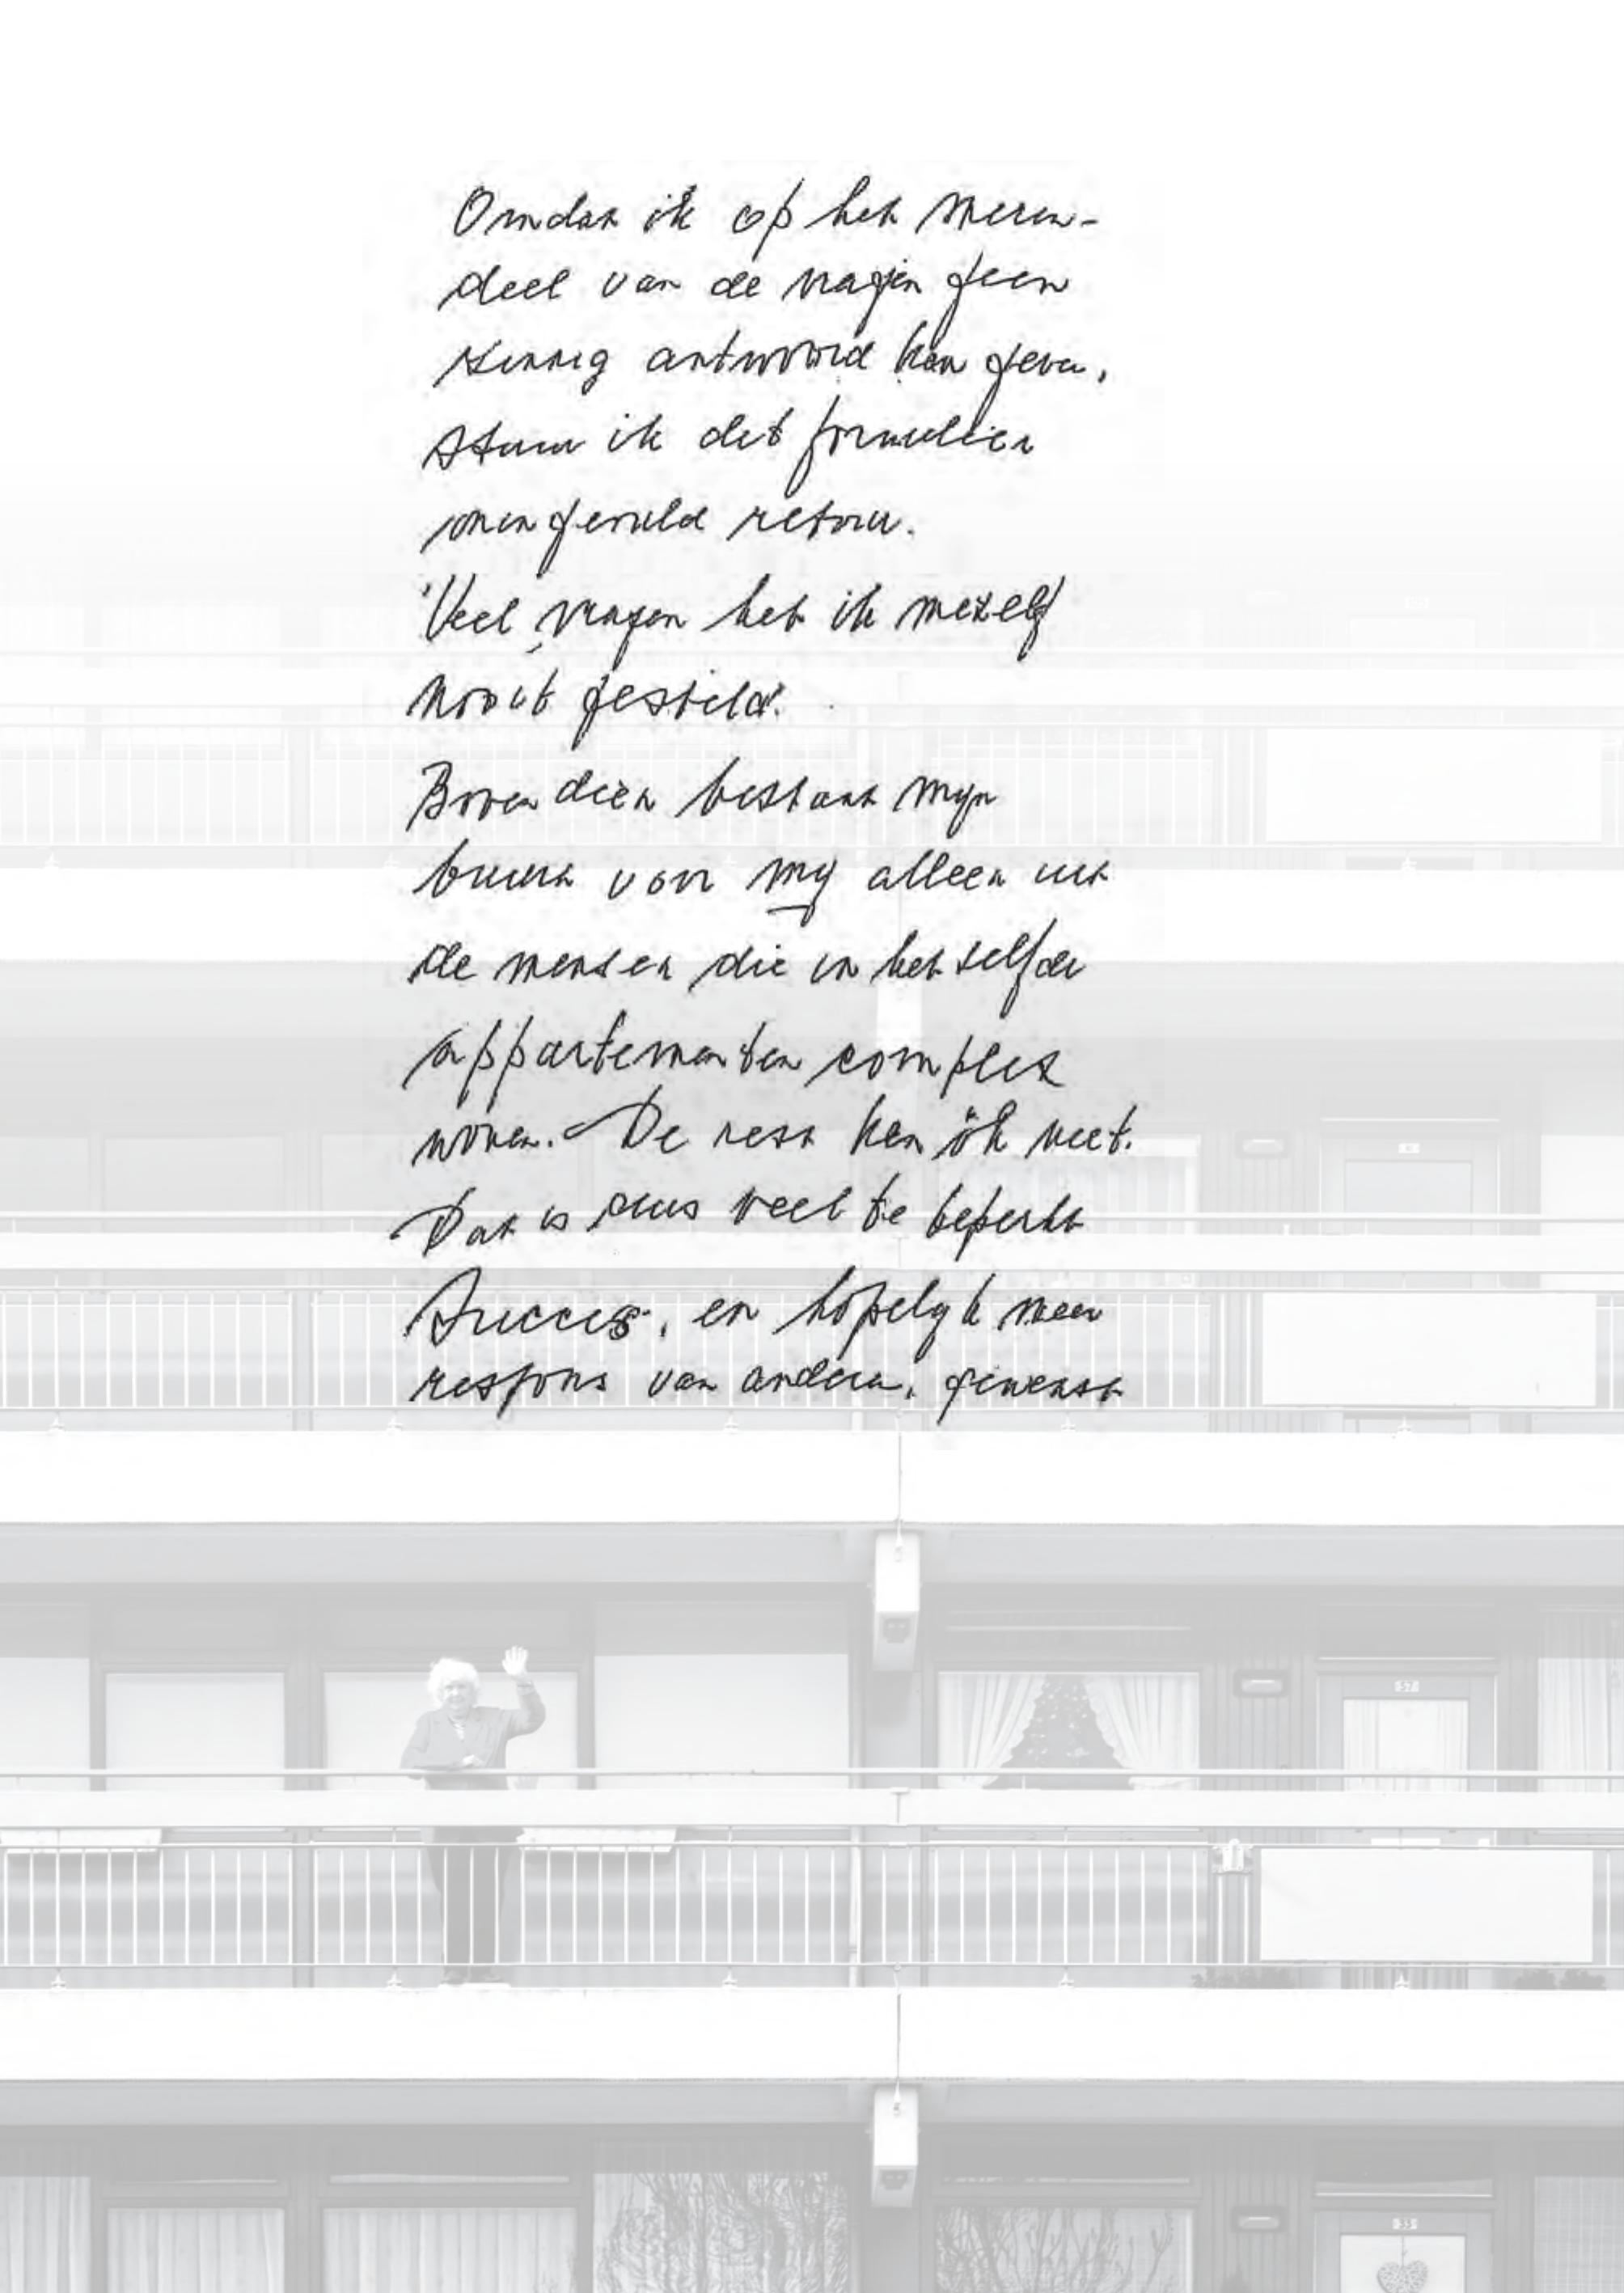 Omdat ik op het meren-
deel van de vragen geen
zinnig antwoord kan geven,
stuur ik dit formulier
oningevuld retour.
Veel vragen heb ik mezelf
nooit gesteld.
Bovendien bestaat mijn
buurt voor mij alleen uit
de mensen die in hetzelfde
appartementen complex
wonen. De rest ken ik niet.
Dat is dus veel te beperkt
Succes, en hopelijk meer
respons van anderen, gewenst
5
57
5
33